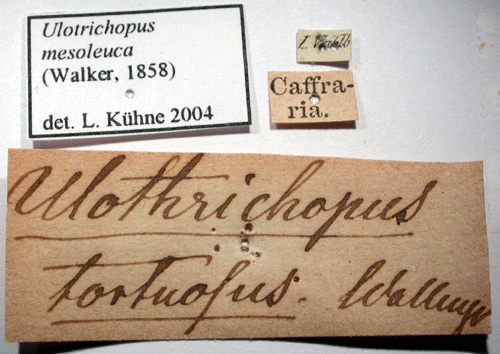 Ulotrichopus
mesoleuca
(Walker, 1858)
det. L. Kühne 2004
Caffra-
ria.
Ulothrichopus
tortuosus. Wallengr